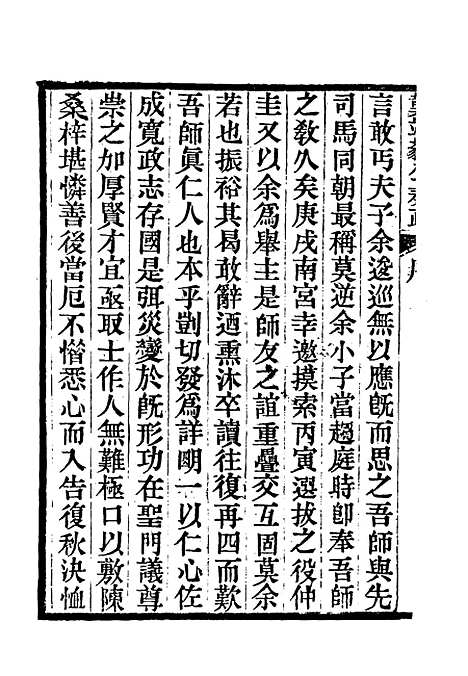 言敢丐夫子余逡巡無以應旣而思之吾師與先
司馬同朝最稱莫逆余小子當趨庭時卽奉吾師
之敎久矣庚戌南宮幸邀摸索丙寅選拔之役仲
圭又以余爲舉主是師友之誼重疊交互固莫余
若也振裕其曷敢辭迺熏沐卒讀往復再四而歎
吾師眞仁人也本乎剴切發爲詳明一以仁心佐
成寬政志存國是弭災變於旣形功在聖門議尊
崇之加厚賢才宜亟取士作人無難極口以敷陳
桑梓堪憐善後當厄不憯悉心而入告復秋決恤